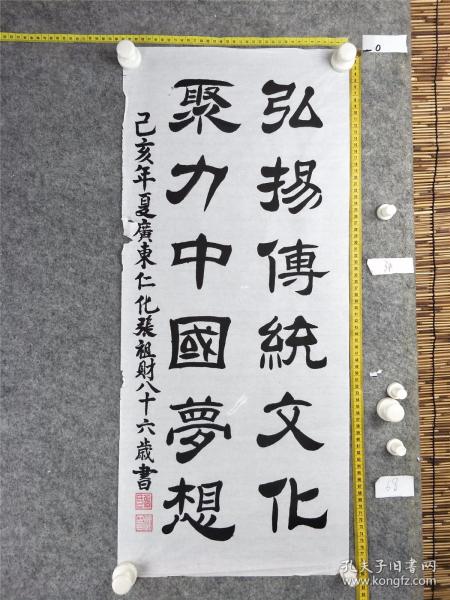 弘揚傳統文化
聚力中國夢想
己亥年夏廣東仁化張祖財八十六歲書
0
68
孔夫子旧书网
www.kongfz.com